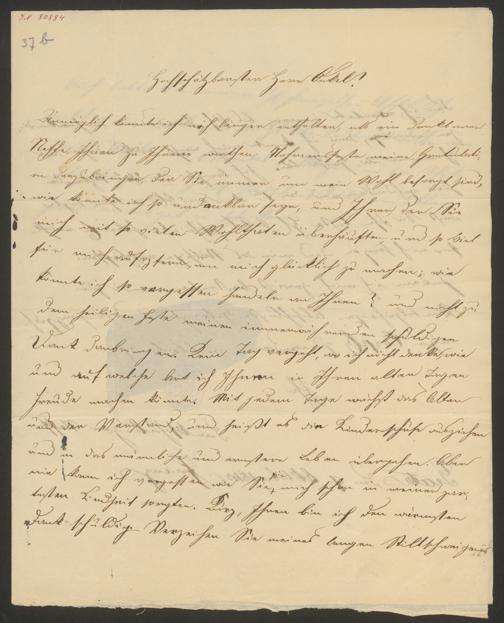 I.N 30884
37 b
Hochschätzbarster Herr Onkel!
Unmöglich konnte ich mich länger enthalten, als ein dankbarer
Neffe Ihnen zu Ihrem werthen Nahmensfeste meine Gratulati-
on darzubringen, der Sie immer um mein Wohl besorgt sind,
wie könnte ich so undankbar seyn, und Ihnen der Sie
mich mit so vielen Wohlthaten überhäuften, und so viel
für mich aufopfern, um mich glücklich zu machen; wie
könnte ich so vergessen handeln an Ihnen? und nicht zu
dem heiligen Feste meinen immerwährenden schuldigen
Dank darbringen. Kein Tag vergeht, wo ich nicht denke, wie
und auf welche Art ich Ihnen in Ihren alten Tagen
Freude machen könnte. Mit jedem Tage wächst das Alter
und der Verstand, und heißt es die Kinderschuhe ausziehen
und in das männliche und ernstere Leben übergehen. Aber
nie kann ich vergessen wie Sie, mich schon in meiner zar-
testen Kindheit sorgten. Kurz, Ihnen bin ich den wärmsten
Dank schuldig. Verzeihen Sie meines langen Stillschweigens